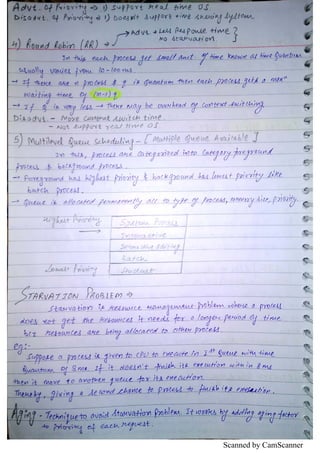 Advt. of Priority → 1) Support real time OS
Disadvt. of Priority → 1) Doesn't support time sharing System.
→ Advt → Less Response time
No starvation.
4) Round Robin (RR) →
In this each process get small amt. of time known as time Quantum
usually varies from 10-100 ms.
→ If there are n process & q is quantum then each process gets a max^m
waiting time of (n-1)q
→ If q is very less → there may be overhead of context switching
Disadvs - More context switch time
- Not support real time OS.
5) Multilevel Queue Scheduling - [Multiple Queue Available]
In this, process are categorized into category foreground
process & background process.
→ Foreground has highest priority & background has lowest priority like
batch process.
→ Queue is allocated permanently acc. to type of process, memory size, priority.
Highest Priority
System Process
Interactive
Interactive editing
Batch
Lowest Priority
Student
STARVATION PROBLEM →
Starvation is resource management problem where a process
does not get the resources it needs for a longer period of time
bcz resources are being allocated to other process
eg:-
Suppose a process is given to CPU to execute in 1st queue with time
quantum of 8ms if it doesn't finish its execution within 8ms
then it move to another queue for its execution.
Thereby, giving a second chance to process to finish its execution.
Aging - Technique to avoid starvation problem. It works by adding aging factor
to priority of each request.
Scanned by CamScanner